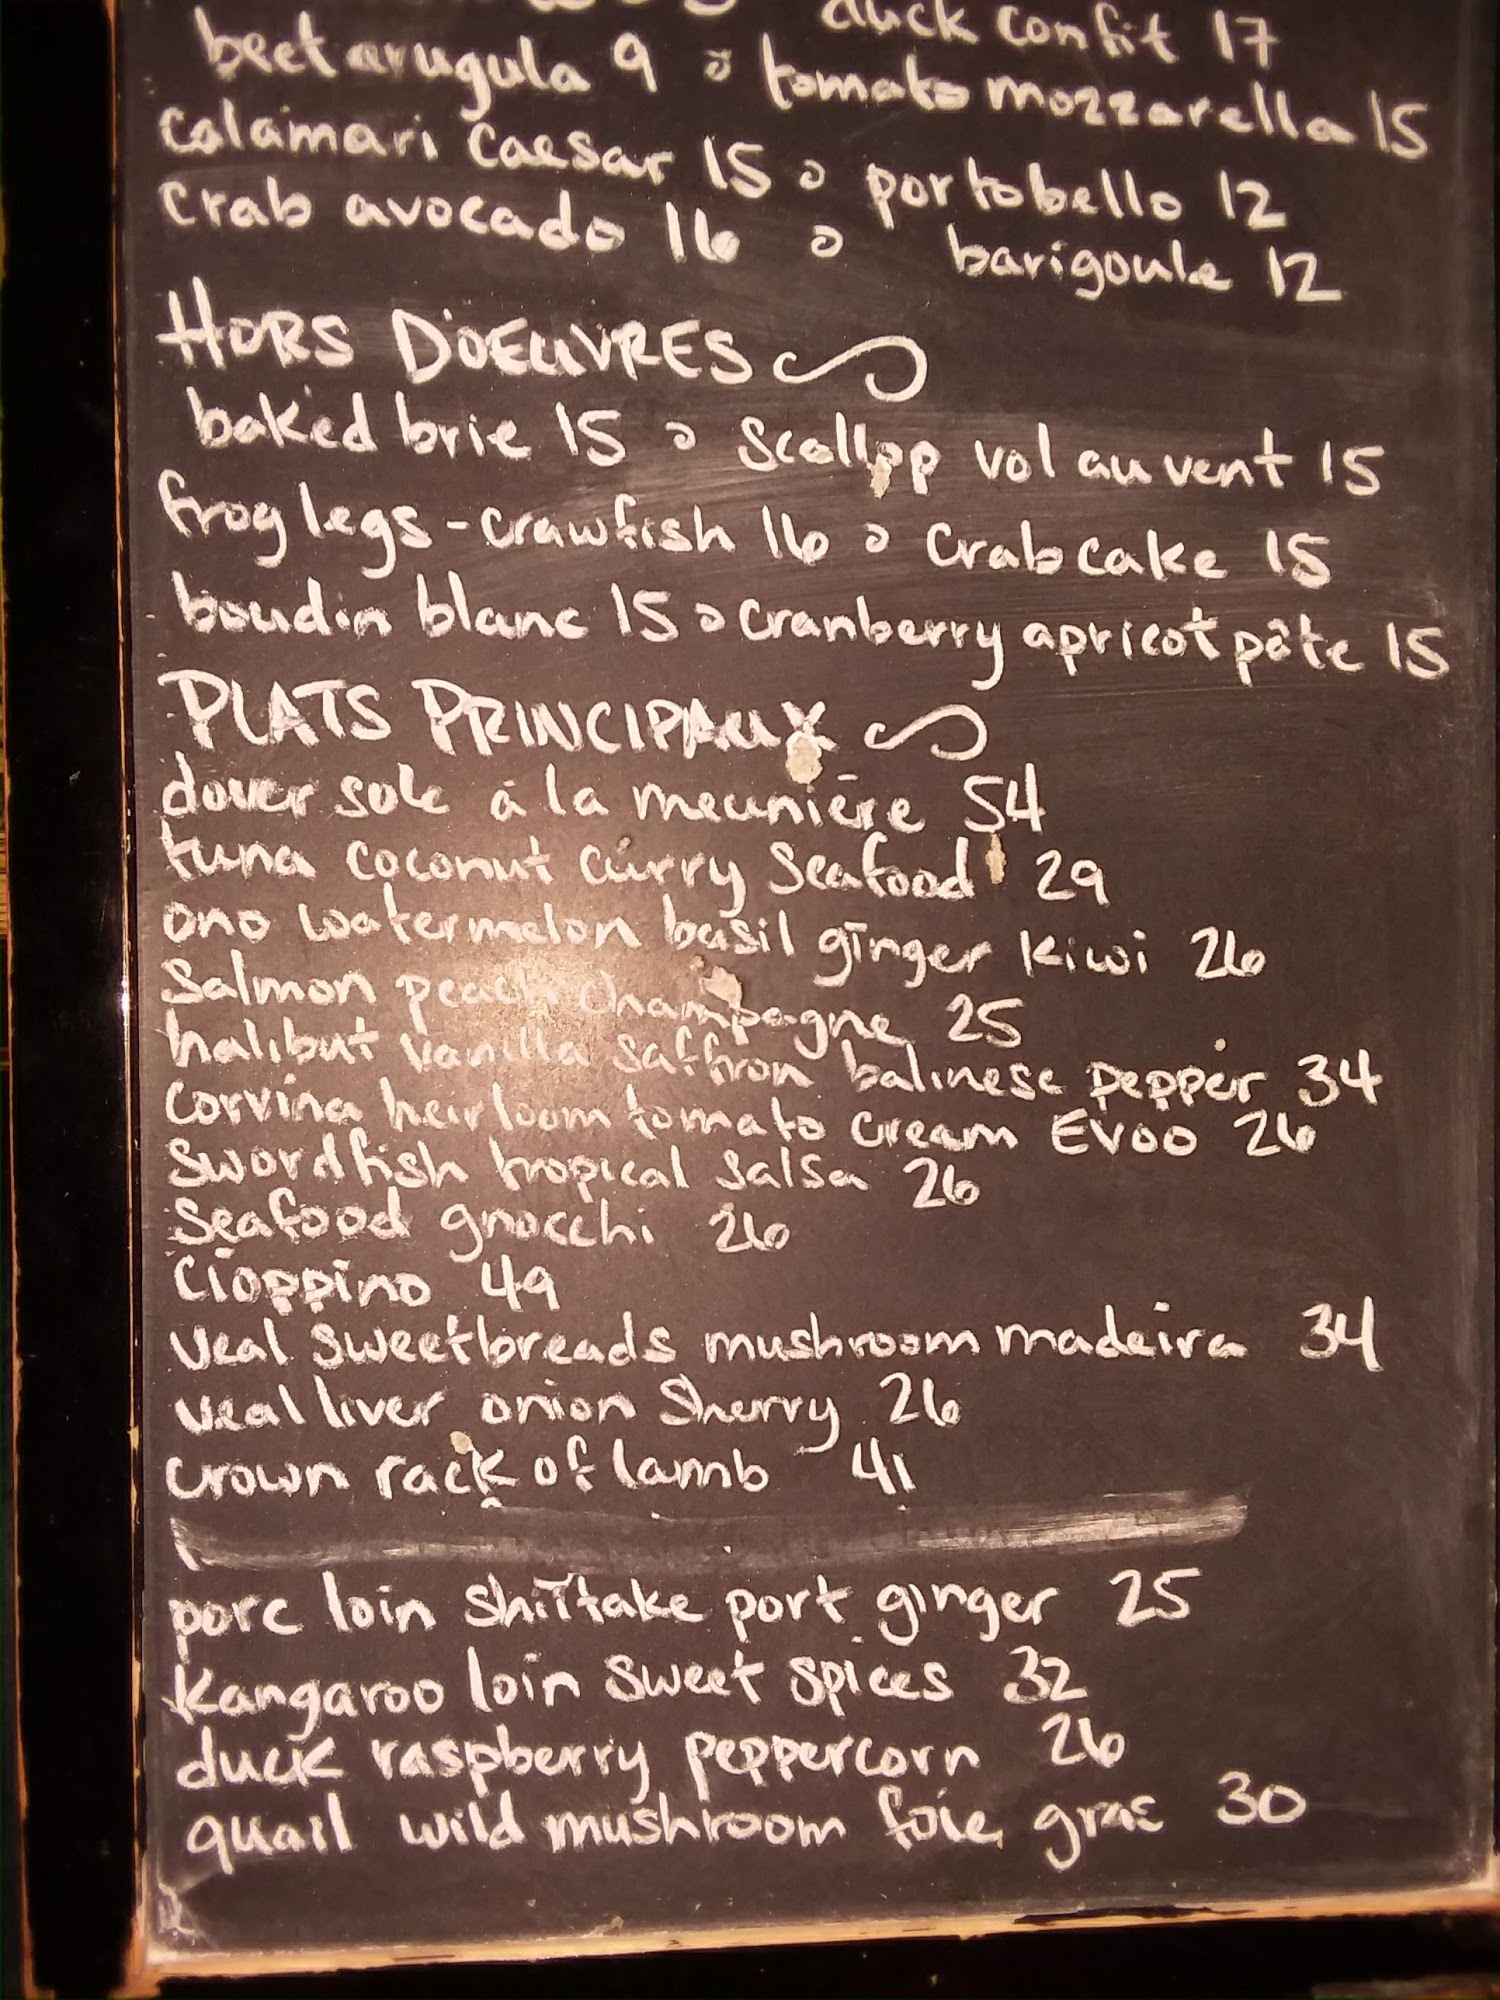 duck confit 17
beet arugula 9 o tomato mozzarella 15
calamari caesar 15 o portobello 12
crab avocado 16 o barigoule 12
HORS D'OEUVRES
baked brie 15 o scallop vol au vent 15
frog legs - crawfish 16 o crab cake 15
boudin blanc 15 o cranberry apricot pâte 15
PLATS PRINCIPAUX
dover sole á la meuniére 54
tuna coconut curry seafood 29
ono watermelon basil ginger kiwi 26
salmon peach champagne 25
halibut vanilla saffron balinese pepper 34
corvina heirloom tomato cream EVOO 26
swordfish tropical salsa 26
seafood gnocchi 26
cioppino 49
veal sweetbreads mushroom madeira 34
veal liver onion sherry 26
crown rack of lamb 41
porc loin shiitake port ginger 25
kangaroo loin sweet spices 32
duck raspberry peppercorn 26
quail wild mushroom foie gras 30